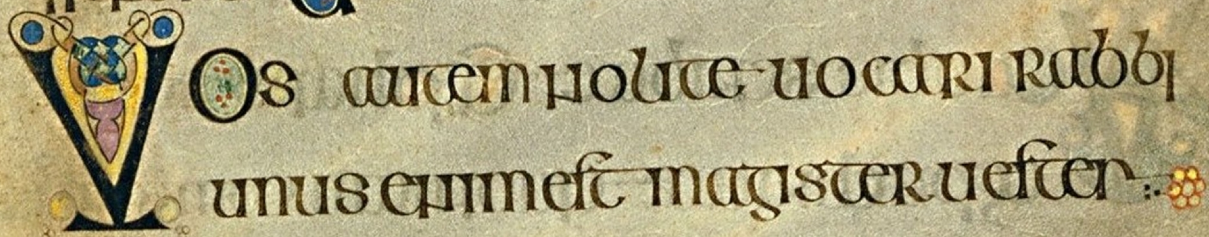 Vos autem nolite uocari rabbi
unus enim est magister uester